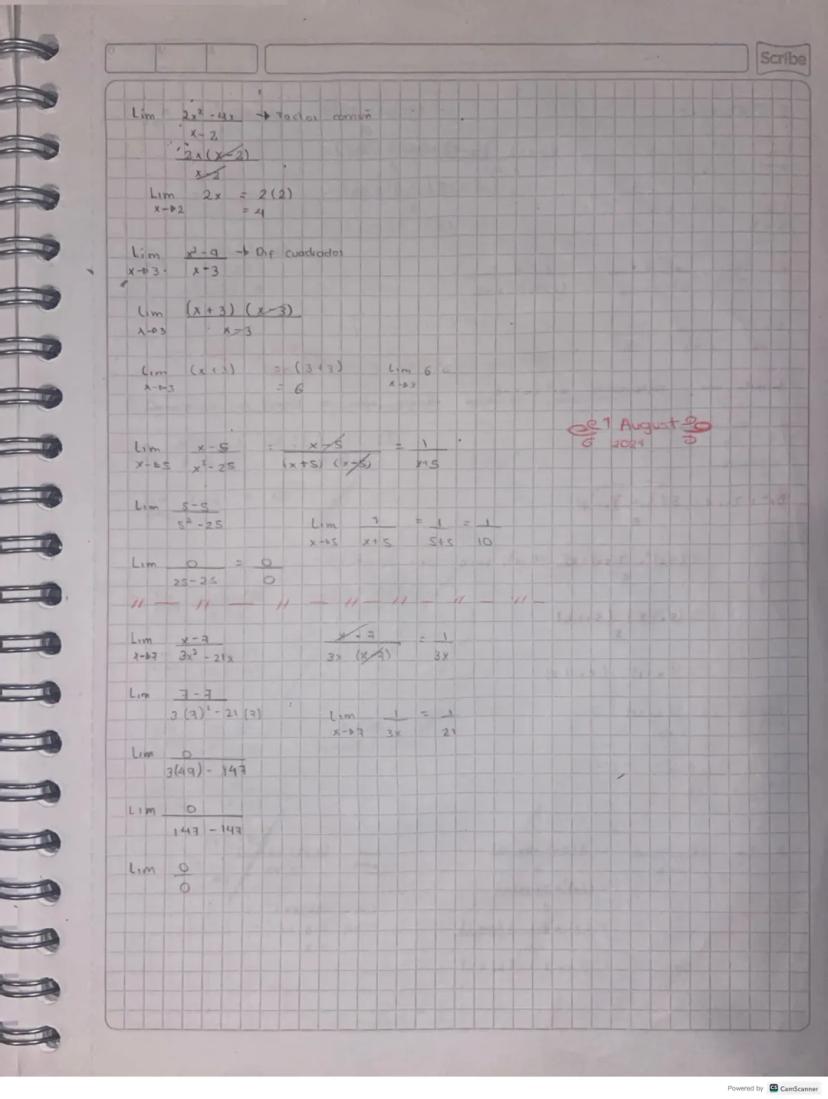 Scribe
Lim 2x² - 4x / x - 2 → Factor común
2x (x - 2) / x - 2
Lim x→2 2x = 2(2)
= 4
Lim x→3 x² - 9 / x - 3 → Dif cuadrados
Lim x→3 (x + 3) (x - 3) / x - 3
Lim x→3 (x + 3) = (3 + 3) Lim x→3 6
= 6
1 August
Lim x→5 x - 5 / x² - 25 = x - 5 / (x + 5) (x - 5) = 1 / x+5
Lim 5 - 5 / 5² - 25
Lim x→5 1 / x + 5 = 1 / 5+5 = 1 / 10
Lim 0 / 25 - 25 = 0 / 0
Lim x→7 x - 7 / 3x² - 21x
x - 7 / 3x (x - 7) = 1 / 3x
Lim 7 - 7 / 3(7)² - 21(7)
Lim x→7 1 / 3x = 1 / 21
Lim 0 / 3(49) - 147
Lim 0 / 147 - 147
Lim 0 / 0
Powered by CamScanner